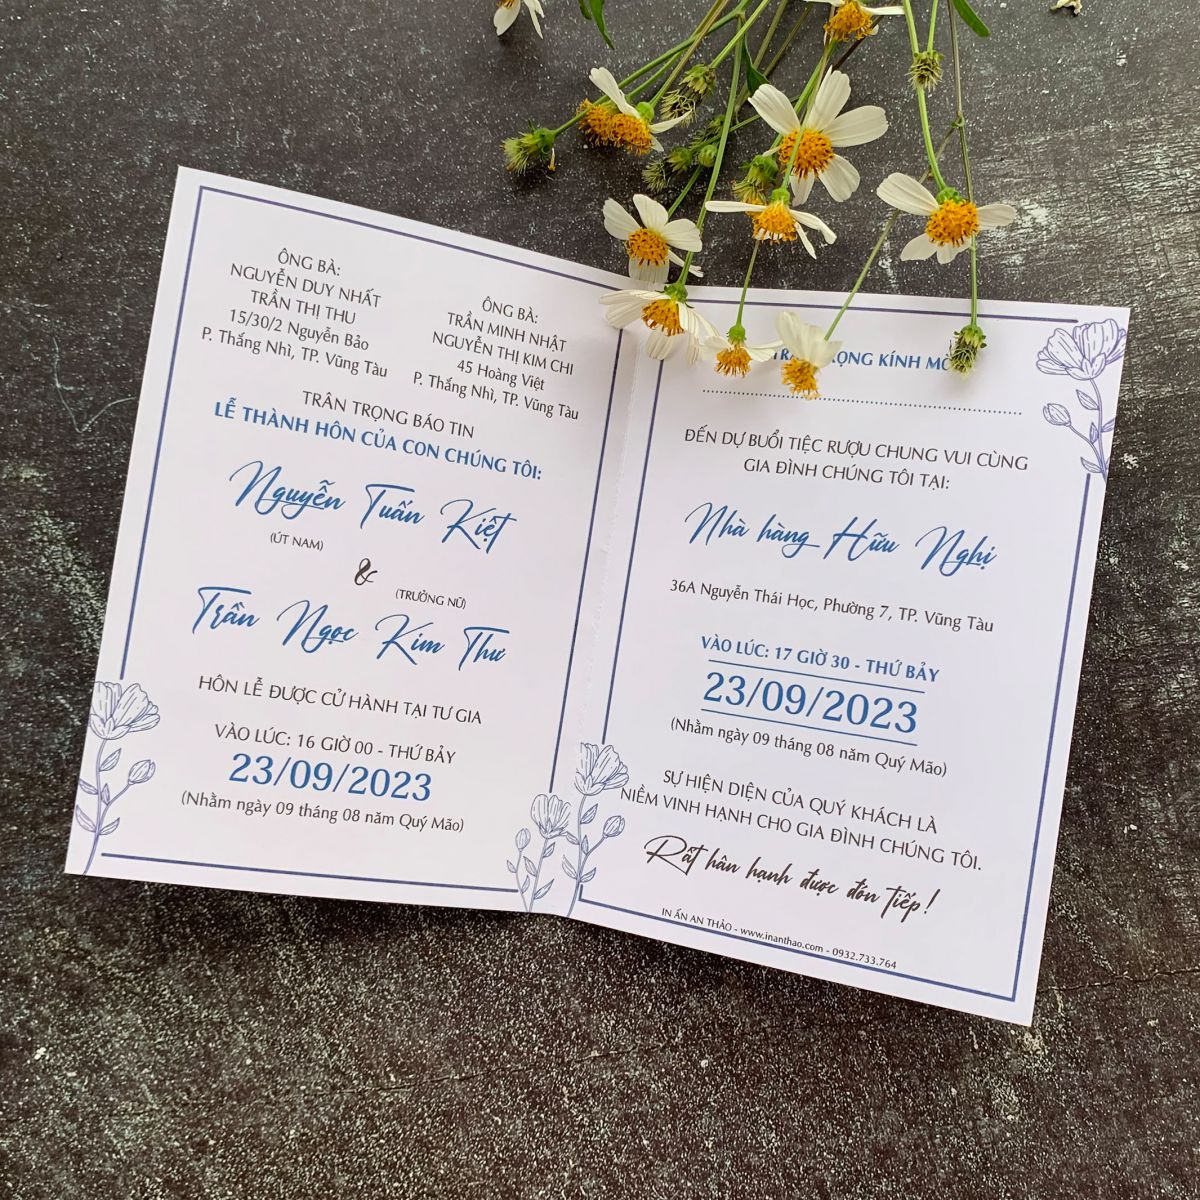 ÔNG BÀ:
NGUYỄN DUY NHẤT
TRẦN THỊ THU
15/30/2 Nguyễn Bảo
P. Thắng Nhì, TP. Vũng Tàu
ÔNG BÀ:
TRẦN MINH NHẬT
NGUYỄN THỊ KIM CHI
45 Hoàng Việt
P. Thắng Nhì, TP. Vũng Tàu
TRÂN TRỌNG BÁO TIN
LỄ THÀNH HÔN CỦA CON CHÚNG TÔI:
Nguyễn Tuấn Kiệt
(ÚT NAM)
&
(TRƯỞNG NỮ)
Trần Ngọc Kim Thư
HÔN LỄ ĐƯỢC CỬ HÀNH TẠI TƯ GIA
VÀO LÚC: 16 GIỜ 00 - THỨ BẢY
23/09/2023
(Nhằm ngày 09 tháng 08 năm Quý Mão)
KÍNH
ĐẾN DỰ BUỔI TIỆC RƯỢU CHUNG VUI CÙNG
GIA ĐÌNH CHÚNG TÔI TẠI:
Nhà hàng Hữu Nghị
36A Nguyễn Thái Học, Phường 7, TP. Vũng Tàu
VÀO LÚC: 17 GIỜ 30 - THỨ BẢY
23/09/2023
(Nhằm ngày 09 tháng 08 năm Quý Mão)
SỰ HIỆN DIỆN CỦA QUÝ KHÁCH LÀ
NIỀM VINH HẠNH CHO GIA ĐÌNH CHÚNG TÔI.
Rất hân hạnh được đón tiếp!
IN ẤN AN THẢO - www.inanthao.com - 0932.733.764